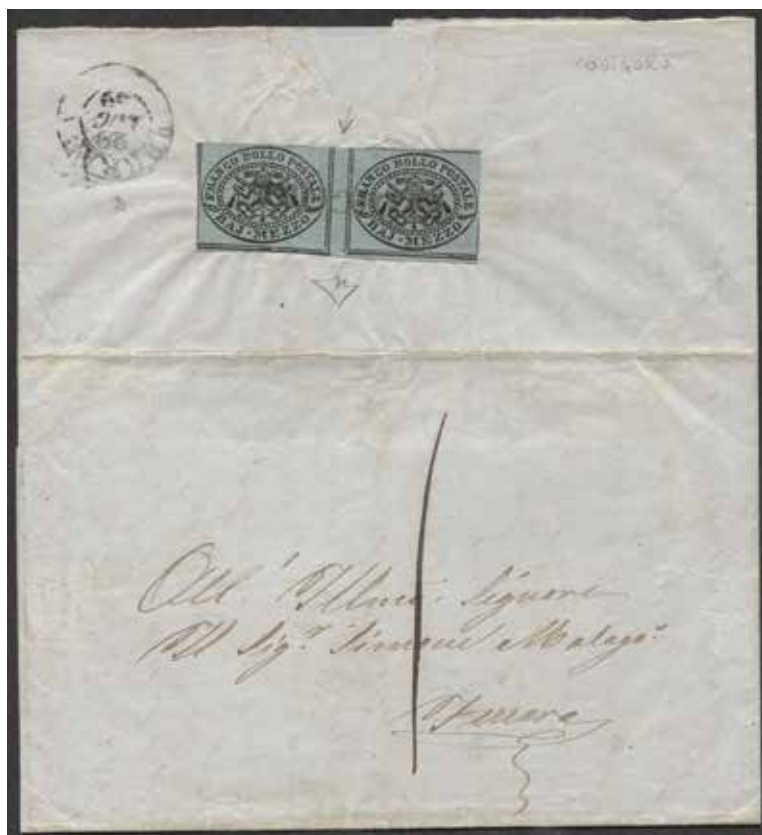 CODIGORO
29
LUG
FRANCO BOLLO POSTALE
BAJ-MEZZO
FRANCO BOLLO POSTALE
BAJ-MEZZO
1
All' Illmo: Signore
Il Sig.r Simone Malago
Ferrara